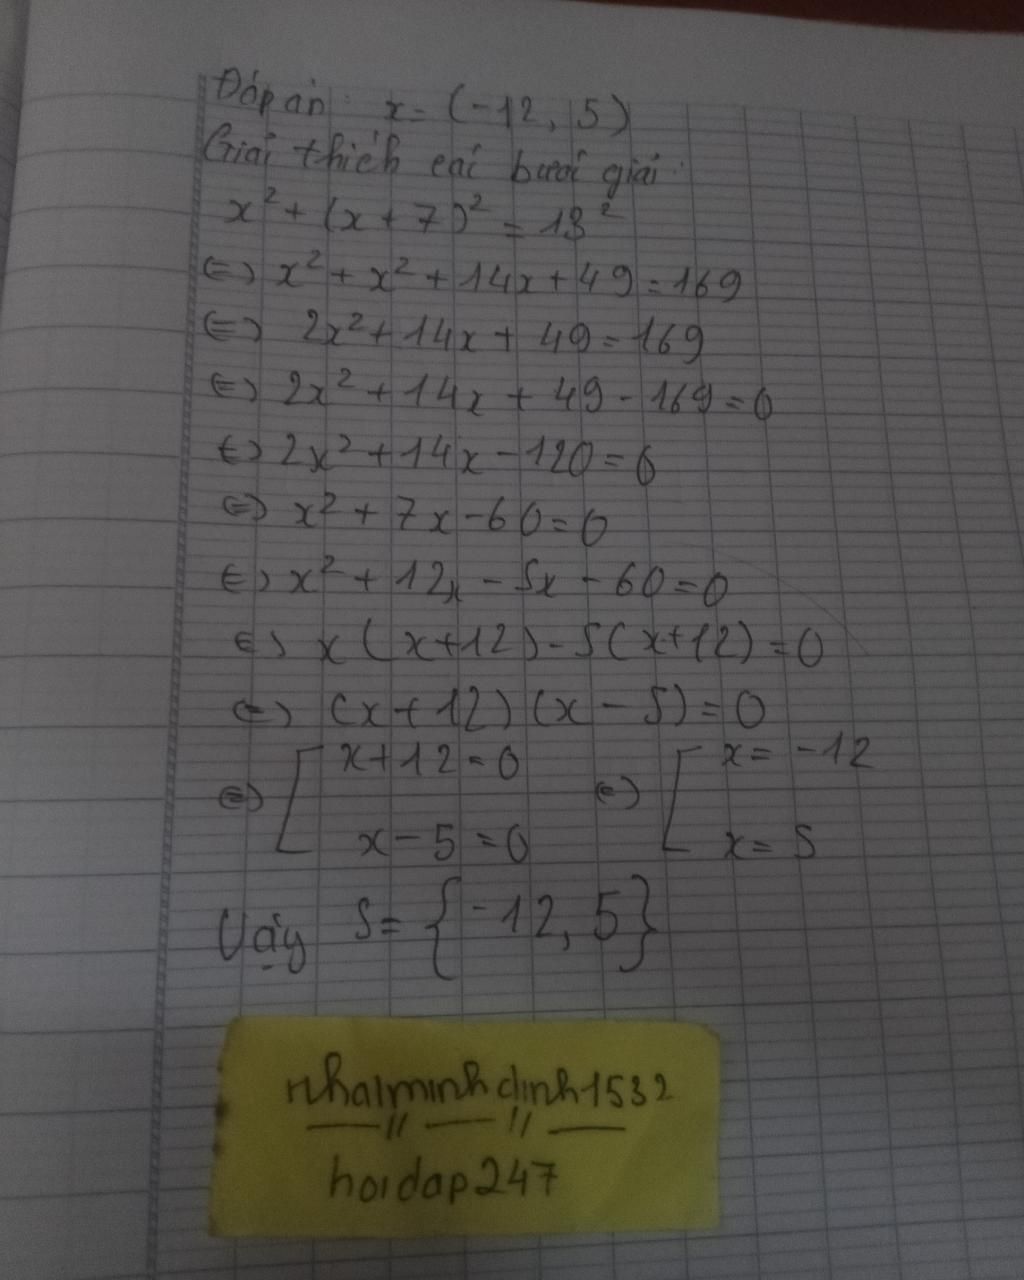 Đáp án: x = (-12, 5)
Giải thích các bước giải:
x² + (x + 7)² = 13²
⇔ x² + x² + 14x + 49 = 169
⇔ 2x² + 14x + 49 = 169
⇔ 2x² + 14x + 49 - 169 = 0
⇔ 2x² + 14x - 120 = 0
⇔ x² + 7x - 60 = 0
⇔ x² + 12x - 5x - 60 = 0
⇔ x(x+12) - 5(x+12) = 0
⇔ (x + 12)(x - 5) = 0
⇔ [ x+12 = 0 ⇔ [ x = -12
x - 5 = 0 x = 5
Vậy S = {-12, 5}
nhalminhdinh1532
hoidap247